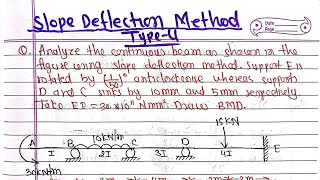 Slope Deflection Method
Type-4
Date
Page
Q. Analyze the continuous beam as shown in the
figure using slope deflection method. Support E is
rotated by (1/50)° anticlockwise whereas supports
D and C sinks by 10mm and 5mm respectively.
Take EI = 30×10¹¹ Nmm². Draw BMD.
10kN/m 15KN
A B C D E
I 2I 3I 4I
30KN/m